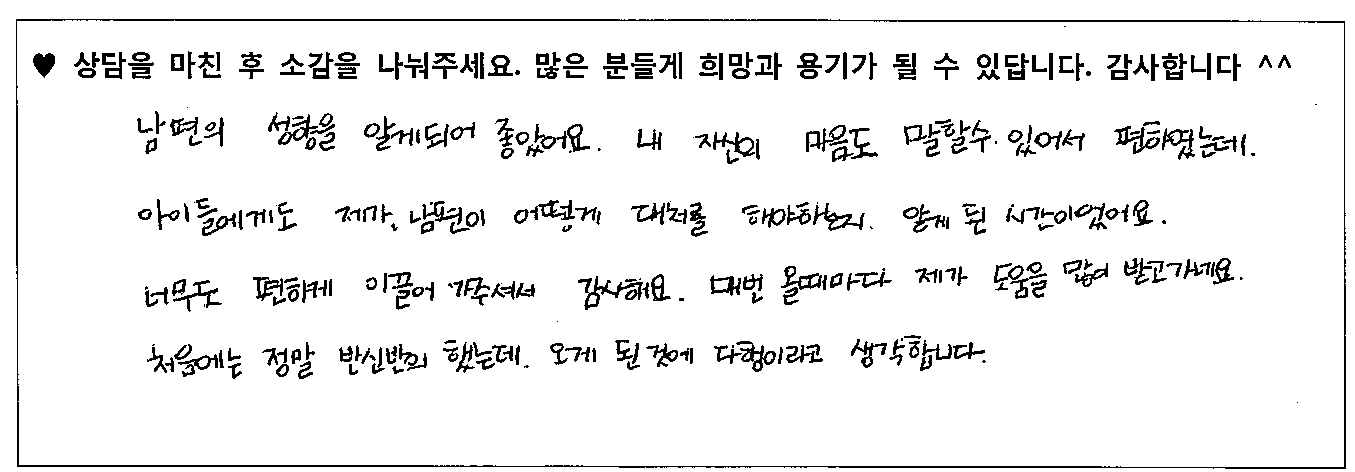 ♥ 상담을 마친 후 소감을 나눠주세요. 많은 분들게 희망과 용기가 될 수 있답니다. 감사합니다 ^^
남편의 성향을 알게되어 좋았어요. 내 자신의 마음도 말할수 있어서 편하였는데.
아이들에게도 제가, 남편이 어떻게 대처를 해야하는지. 알게 된 시간이었어요.
너무도 편하게 이끌어 가주셔서 감사해요. 매번 올때마다 제가 도움을 많이 받고가네요.
처음에는 정말 반신반의 했는데. 오게 된것에 다행이라고 생각합니다.